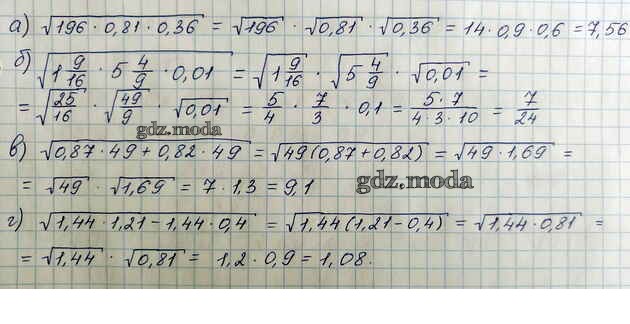 а) √196 · 0,81 · 0,36 = √196 · √0,81 · √0,36 = 14 · 0,9 · 0,6 = 7,56
б) √1 9/16 · 5 4/9 · 0,01 = √1 9/16 · √5 4/9 · √0,01 =
= √25/16 · √49/9 · √0,01 = 5/4 · 7/3 · 0,1 = 5·7/4·3·10 = 7/24
gdz.moda
в) √0,87 · 49 + 0,82 · 49 = √49(0,87 + 0,82) = √49 · 1,69 =
= √49 · √1,69 = 7 · 1,3 = 9,1
gdz.moda
г) √1,44 · 1,21 - 1,44 · 0,4 = √1,44(1,21 - 0,4) = √1,44 · 0,81 =
= √1,44 · √0,81 = 1,2 · 0,9 = 1,08.